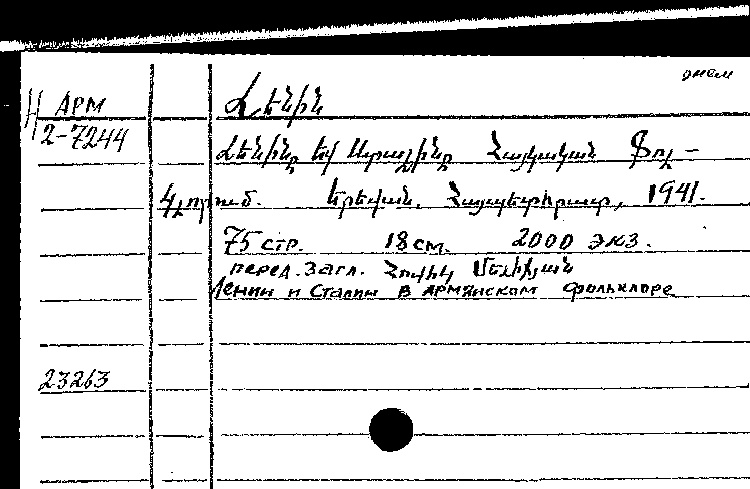 экем
Н АРМ
2-7244
Լենին
Լենինը եվ Ստալինը Հայկական Ֆոլ-
կլորում. Երեվան, Հայպետհրատ, 1941.
75 стр. 18 см. 2000 экз.
перед. загл. Հովիկ Մելիքյան
Ленин и Сталин в армянском фольклоре
23263